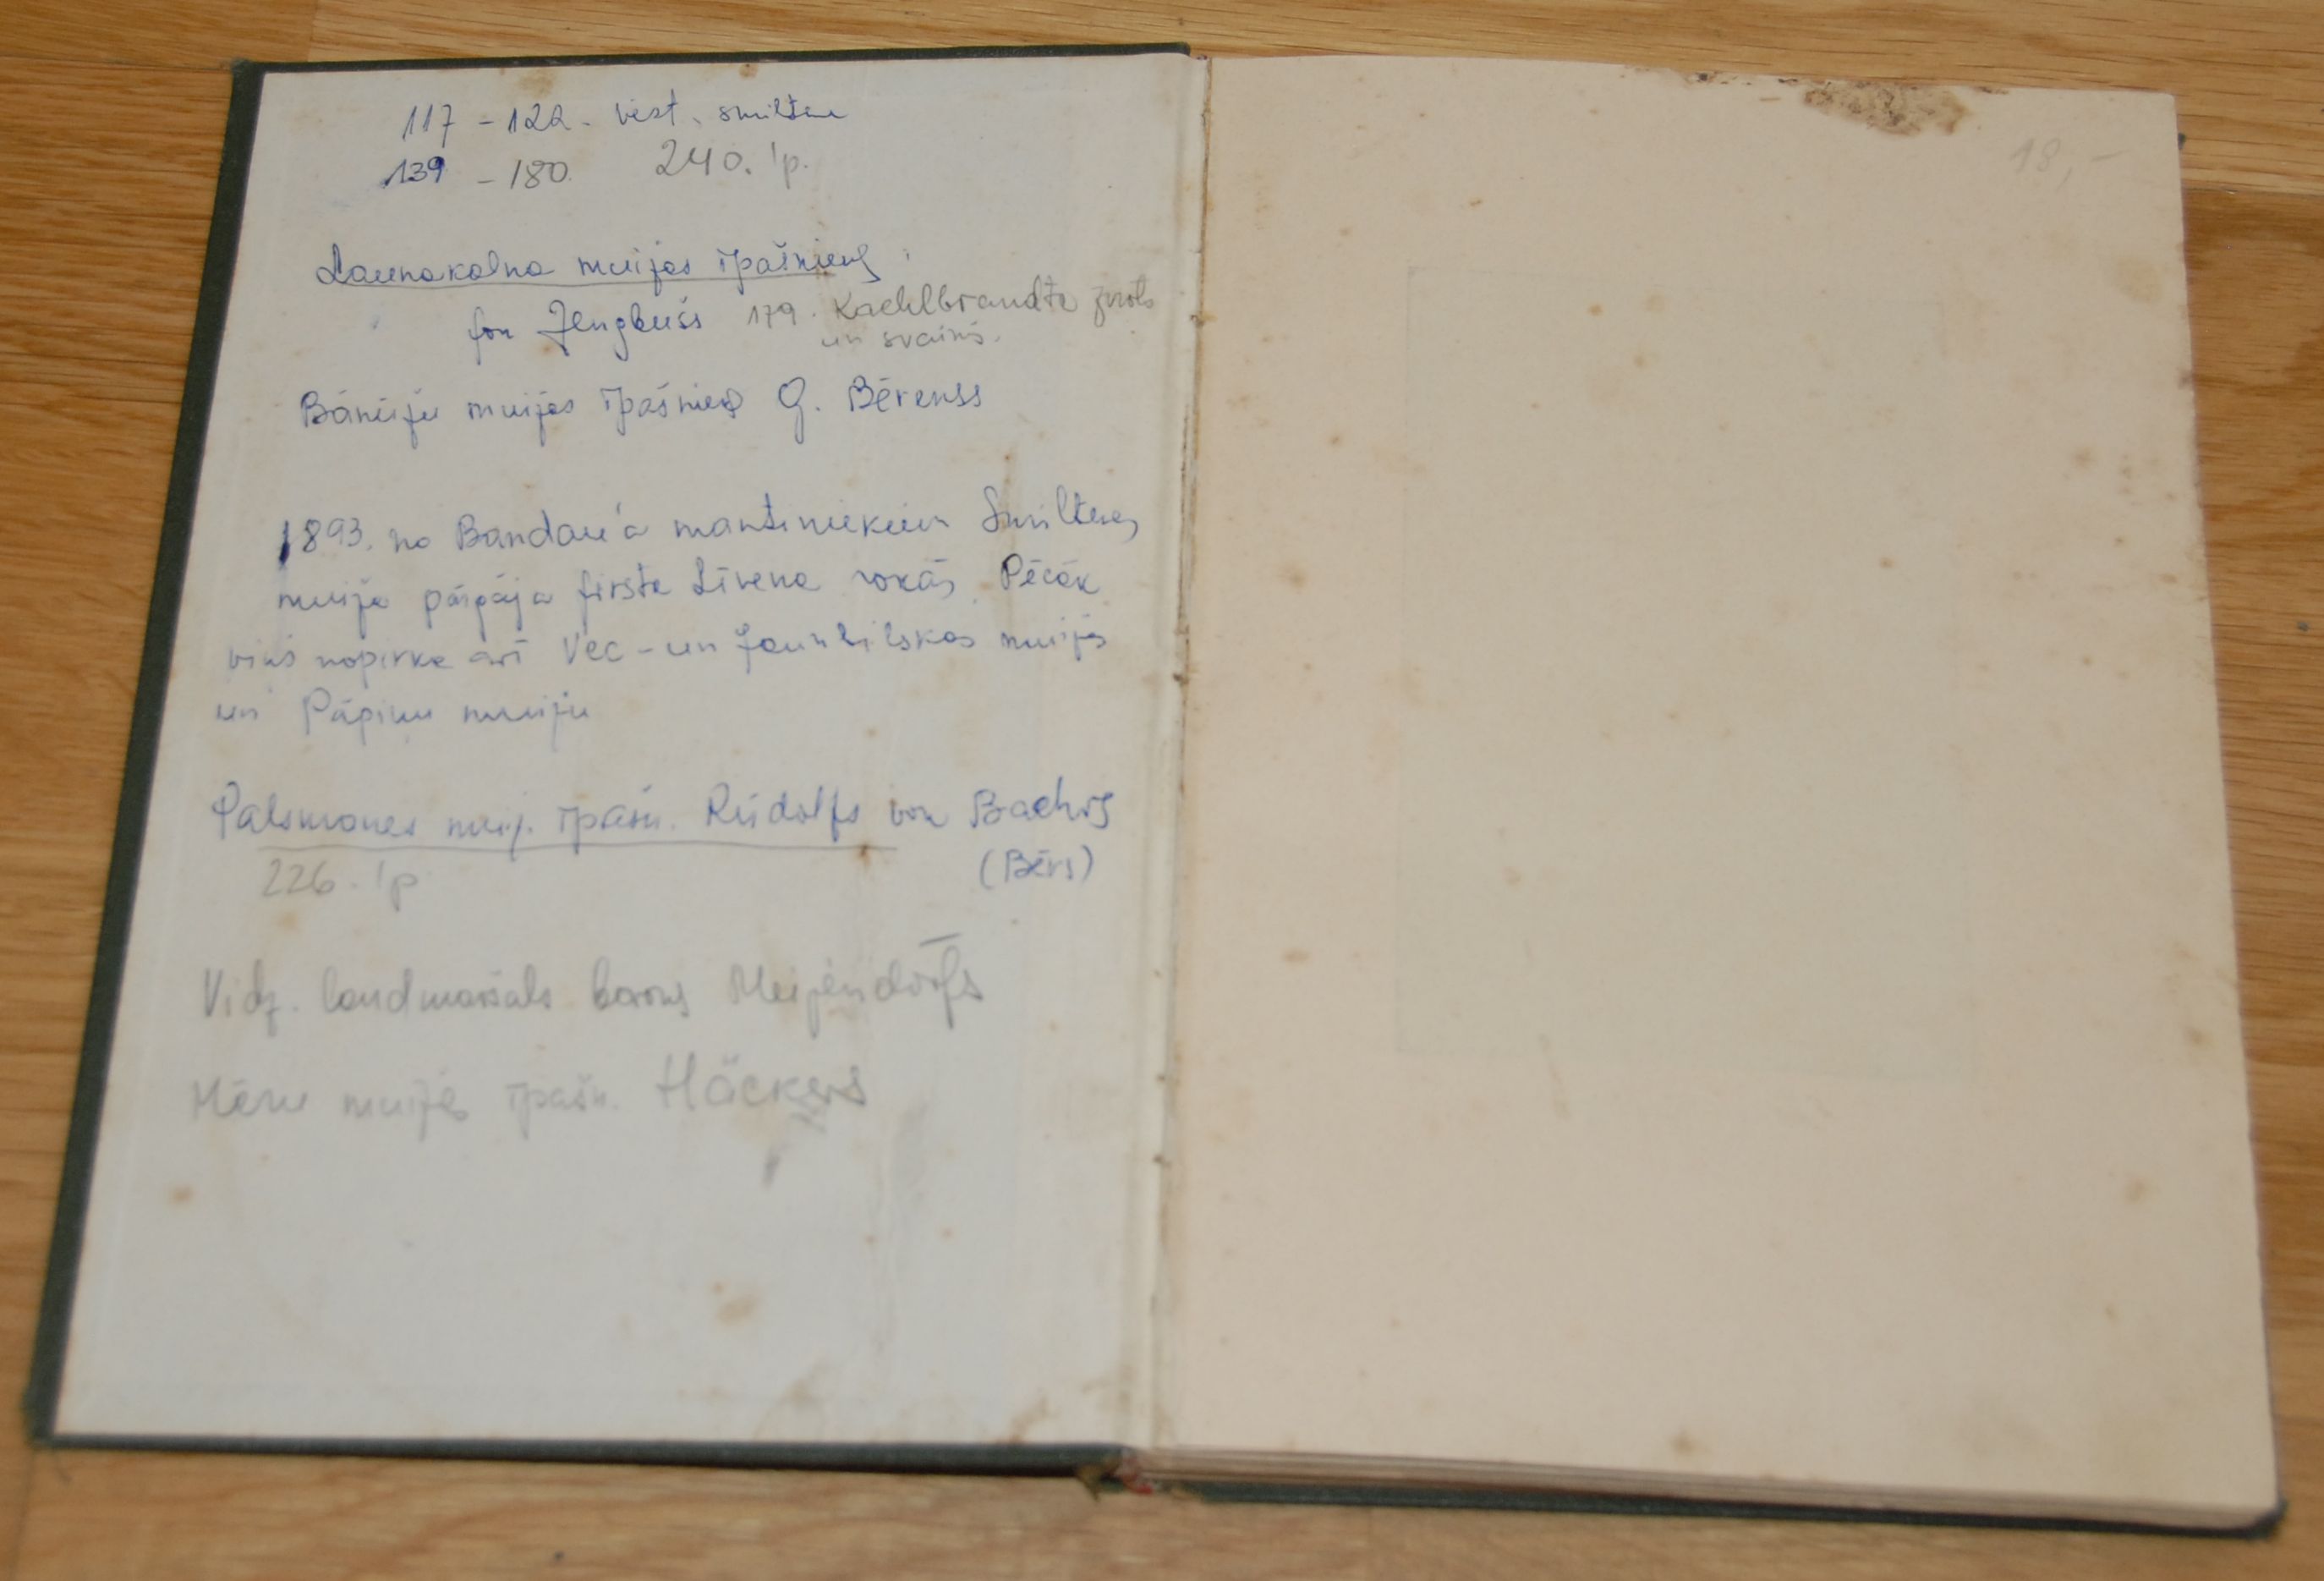 117 - 122. vēst. Smiltene
139 - 180. 240. lp.
Launakalna muižas īpašnieks
fon 179. Kachlbrandta znots
un svainis.
Bānūžu muižas īpašnieks G. Bērenss
1893. no Bandau'a mantiniekiem Smiltenes
muiža pārgāja firsta Līvena rokās. Pēcāk
viņš nopirka arī Vec- un Jaunbilskas muižas
un Pāpiņu muižu
Palsmanes muiž. īpašn. Rūdolfs von Baehrs
226. lp (Bērs)
Vidz. landmaršals barons Meijendorfs
Mēru muižas īpašn. Häckers
18,-